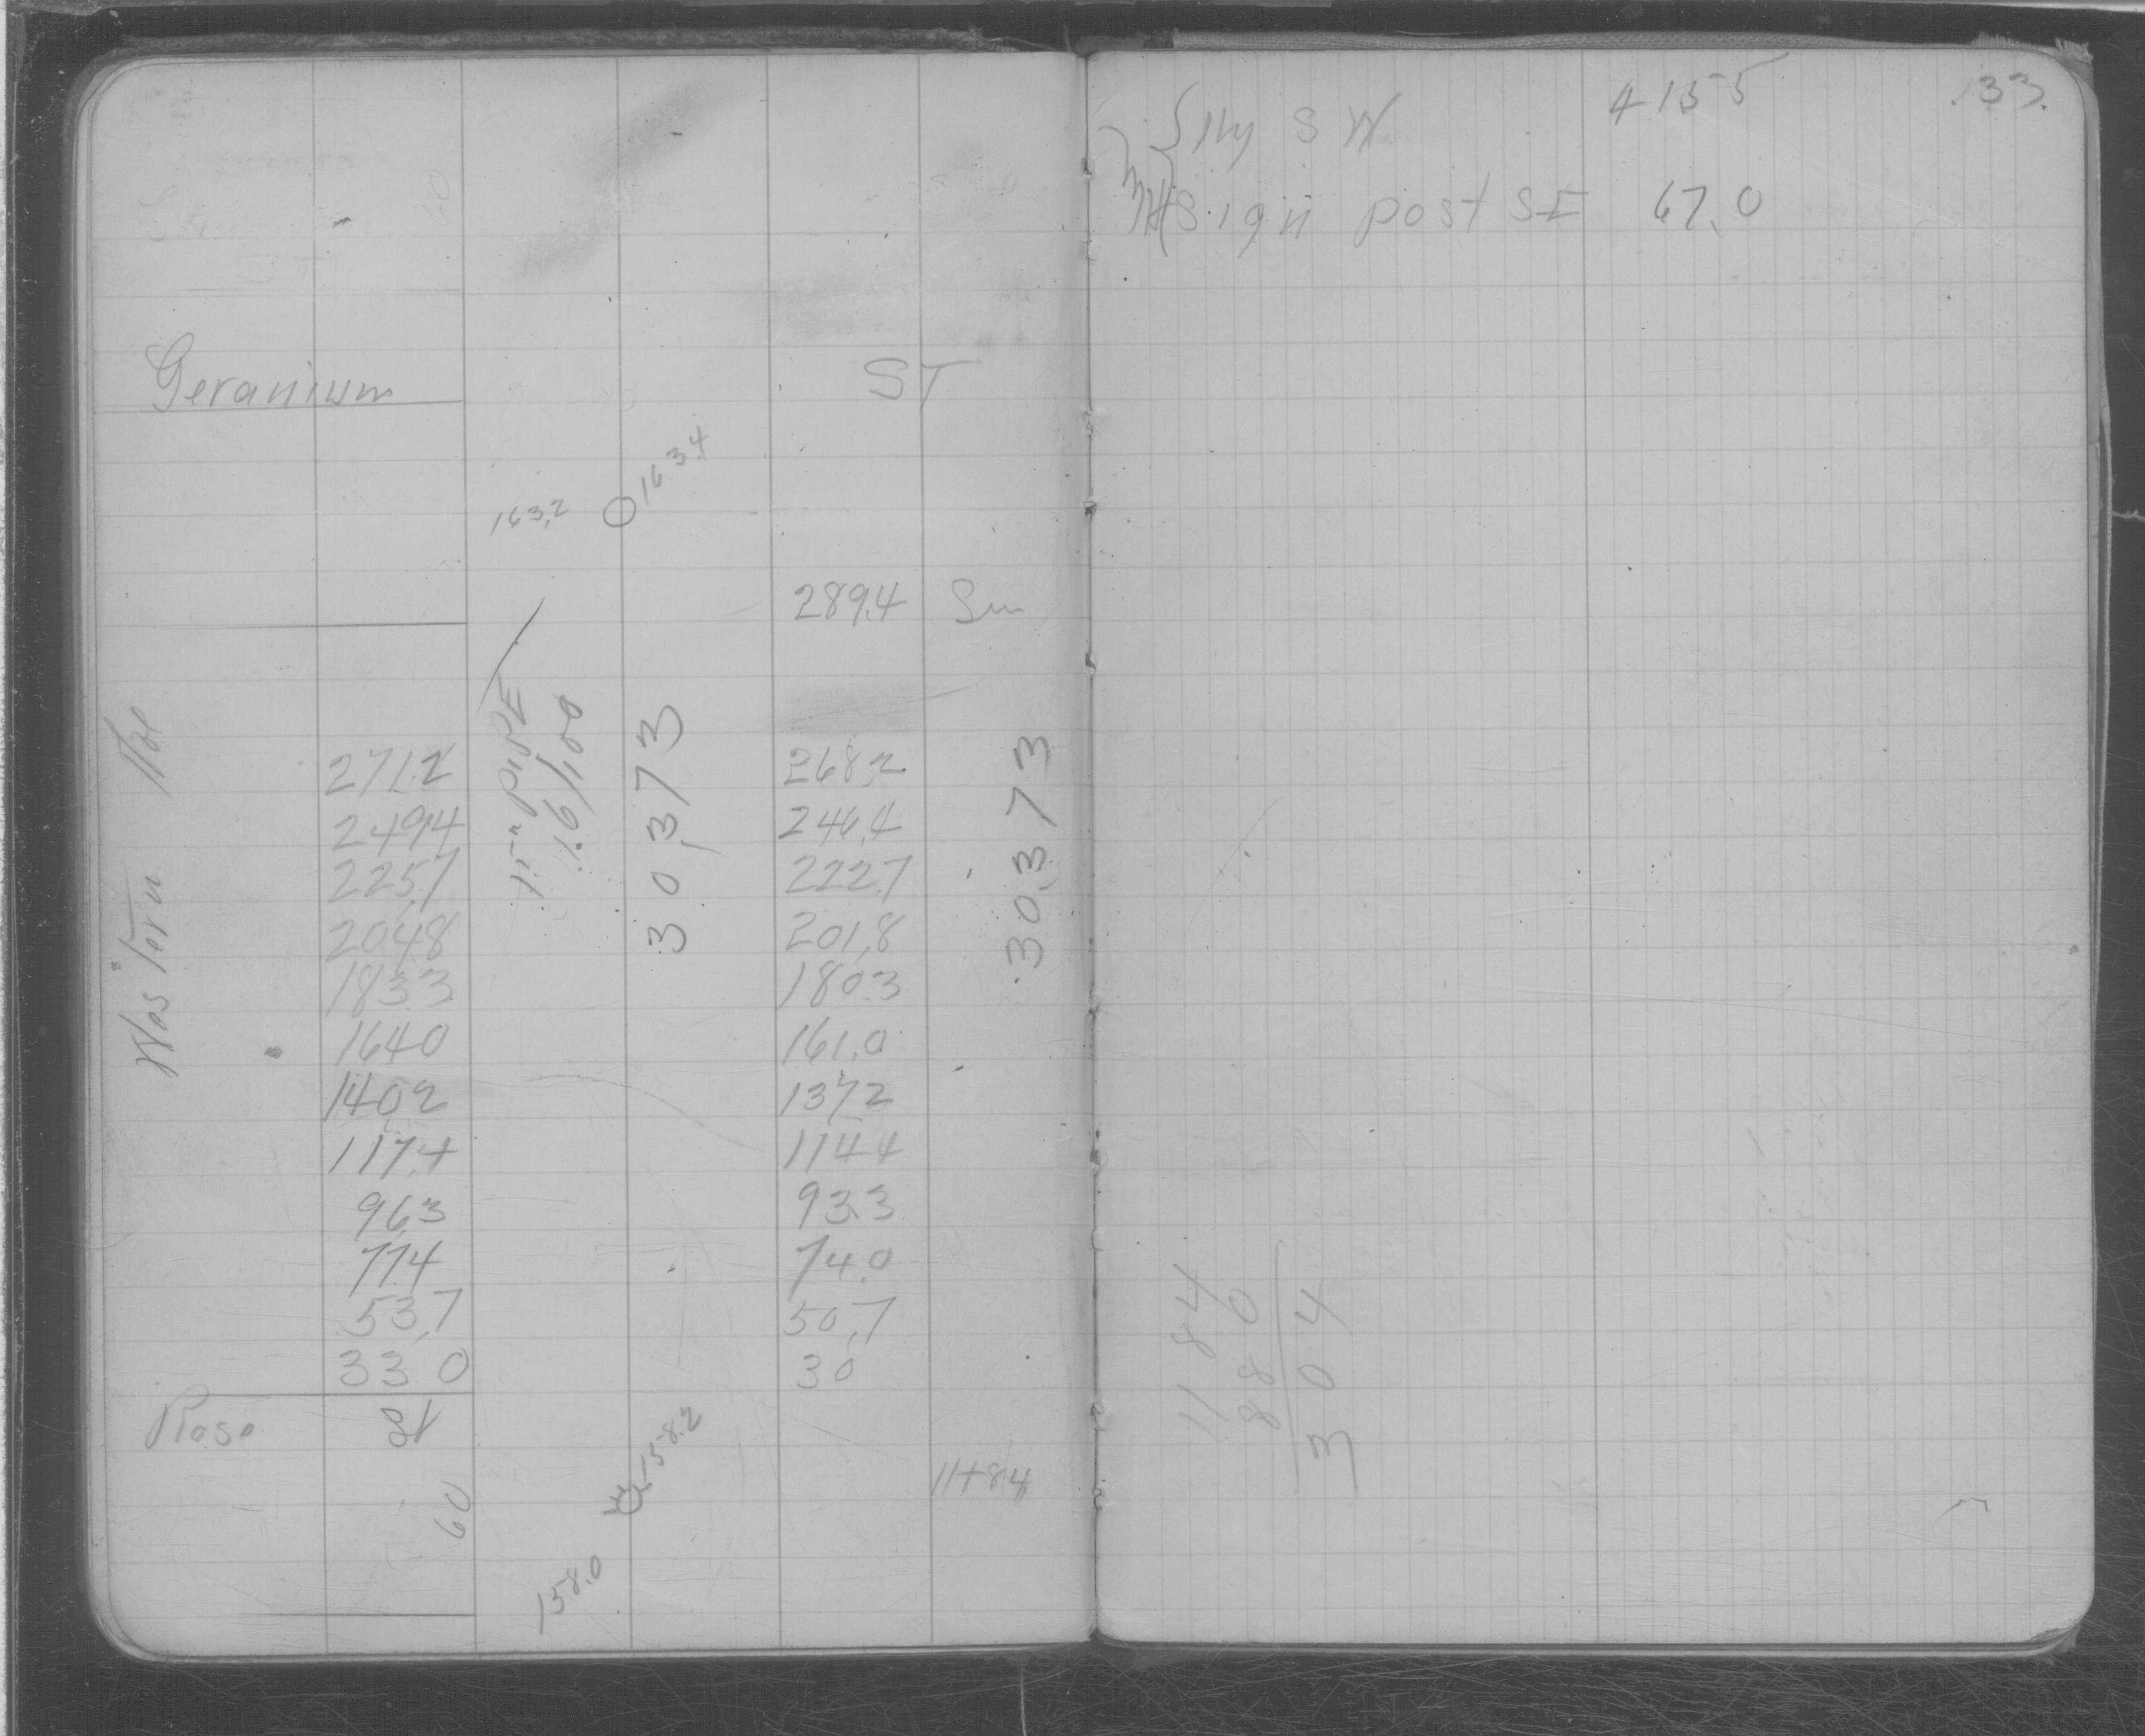 Geranium ST
163.2 163.4
289.4 Sm
Western Ave
1.5" pipe
1.6/100
303.73
303.73
271.2 268.2
249.4 246.4
225.7 222.7
204.8 201.8
183.3 180.3
164.0 161.0
140.2 137.2
117.4 114.4
96.3 93.3
77.4 74.0
53.7 50.7
33 0 30
Rose St
60
158.2
158.0
11+84
33.
S W 415 5
Sign post SE 67.0
11 84
8 80
3 04